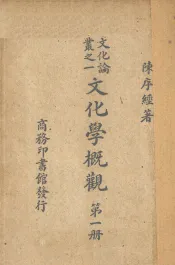 陳序經著
文化論
叢之一
文化學概觀
第一册
商務印書館發行